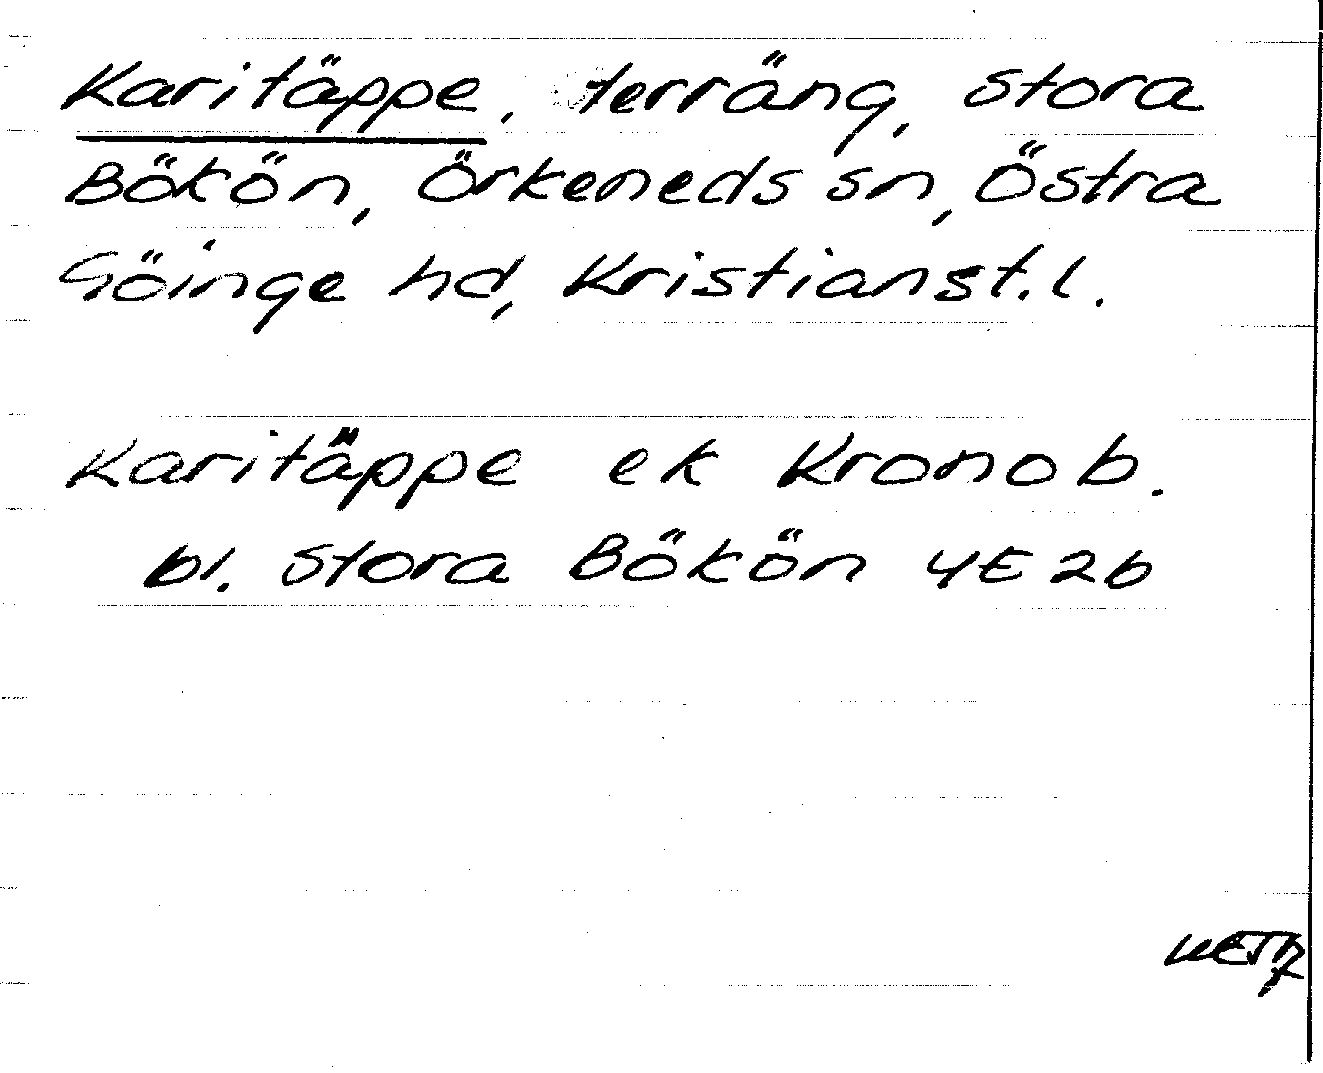 Karitäppe, terräng, Stora
Bökön, Örkeneds sn, Östra
Göinge hd, Kristianst. l.
Karitäppe ek Kronob.
bl. Stora Bökön 4E 2b